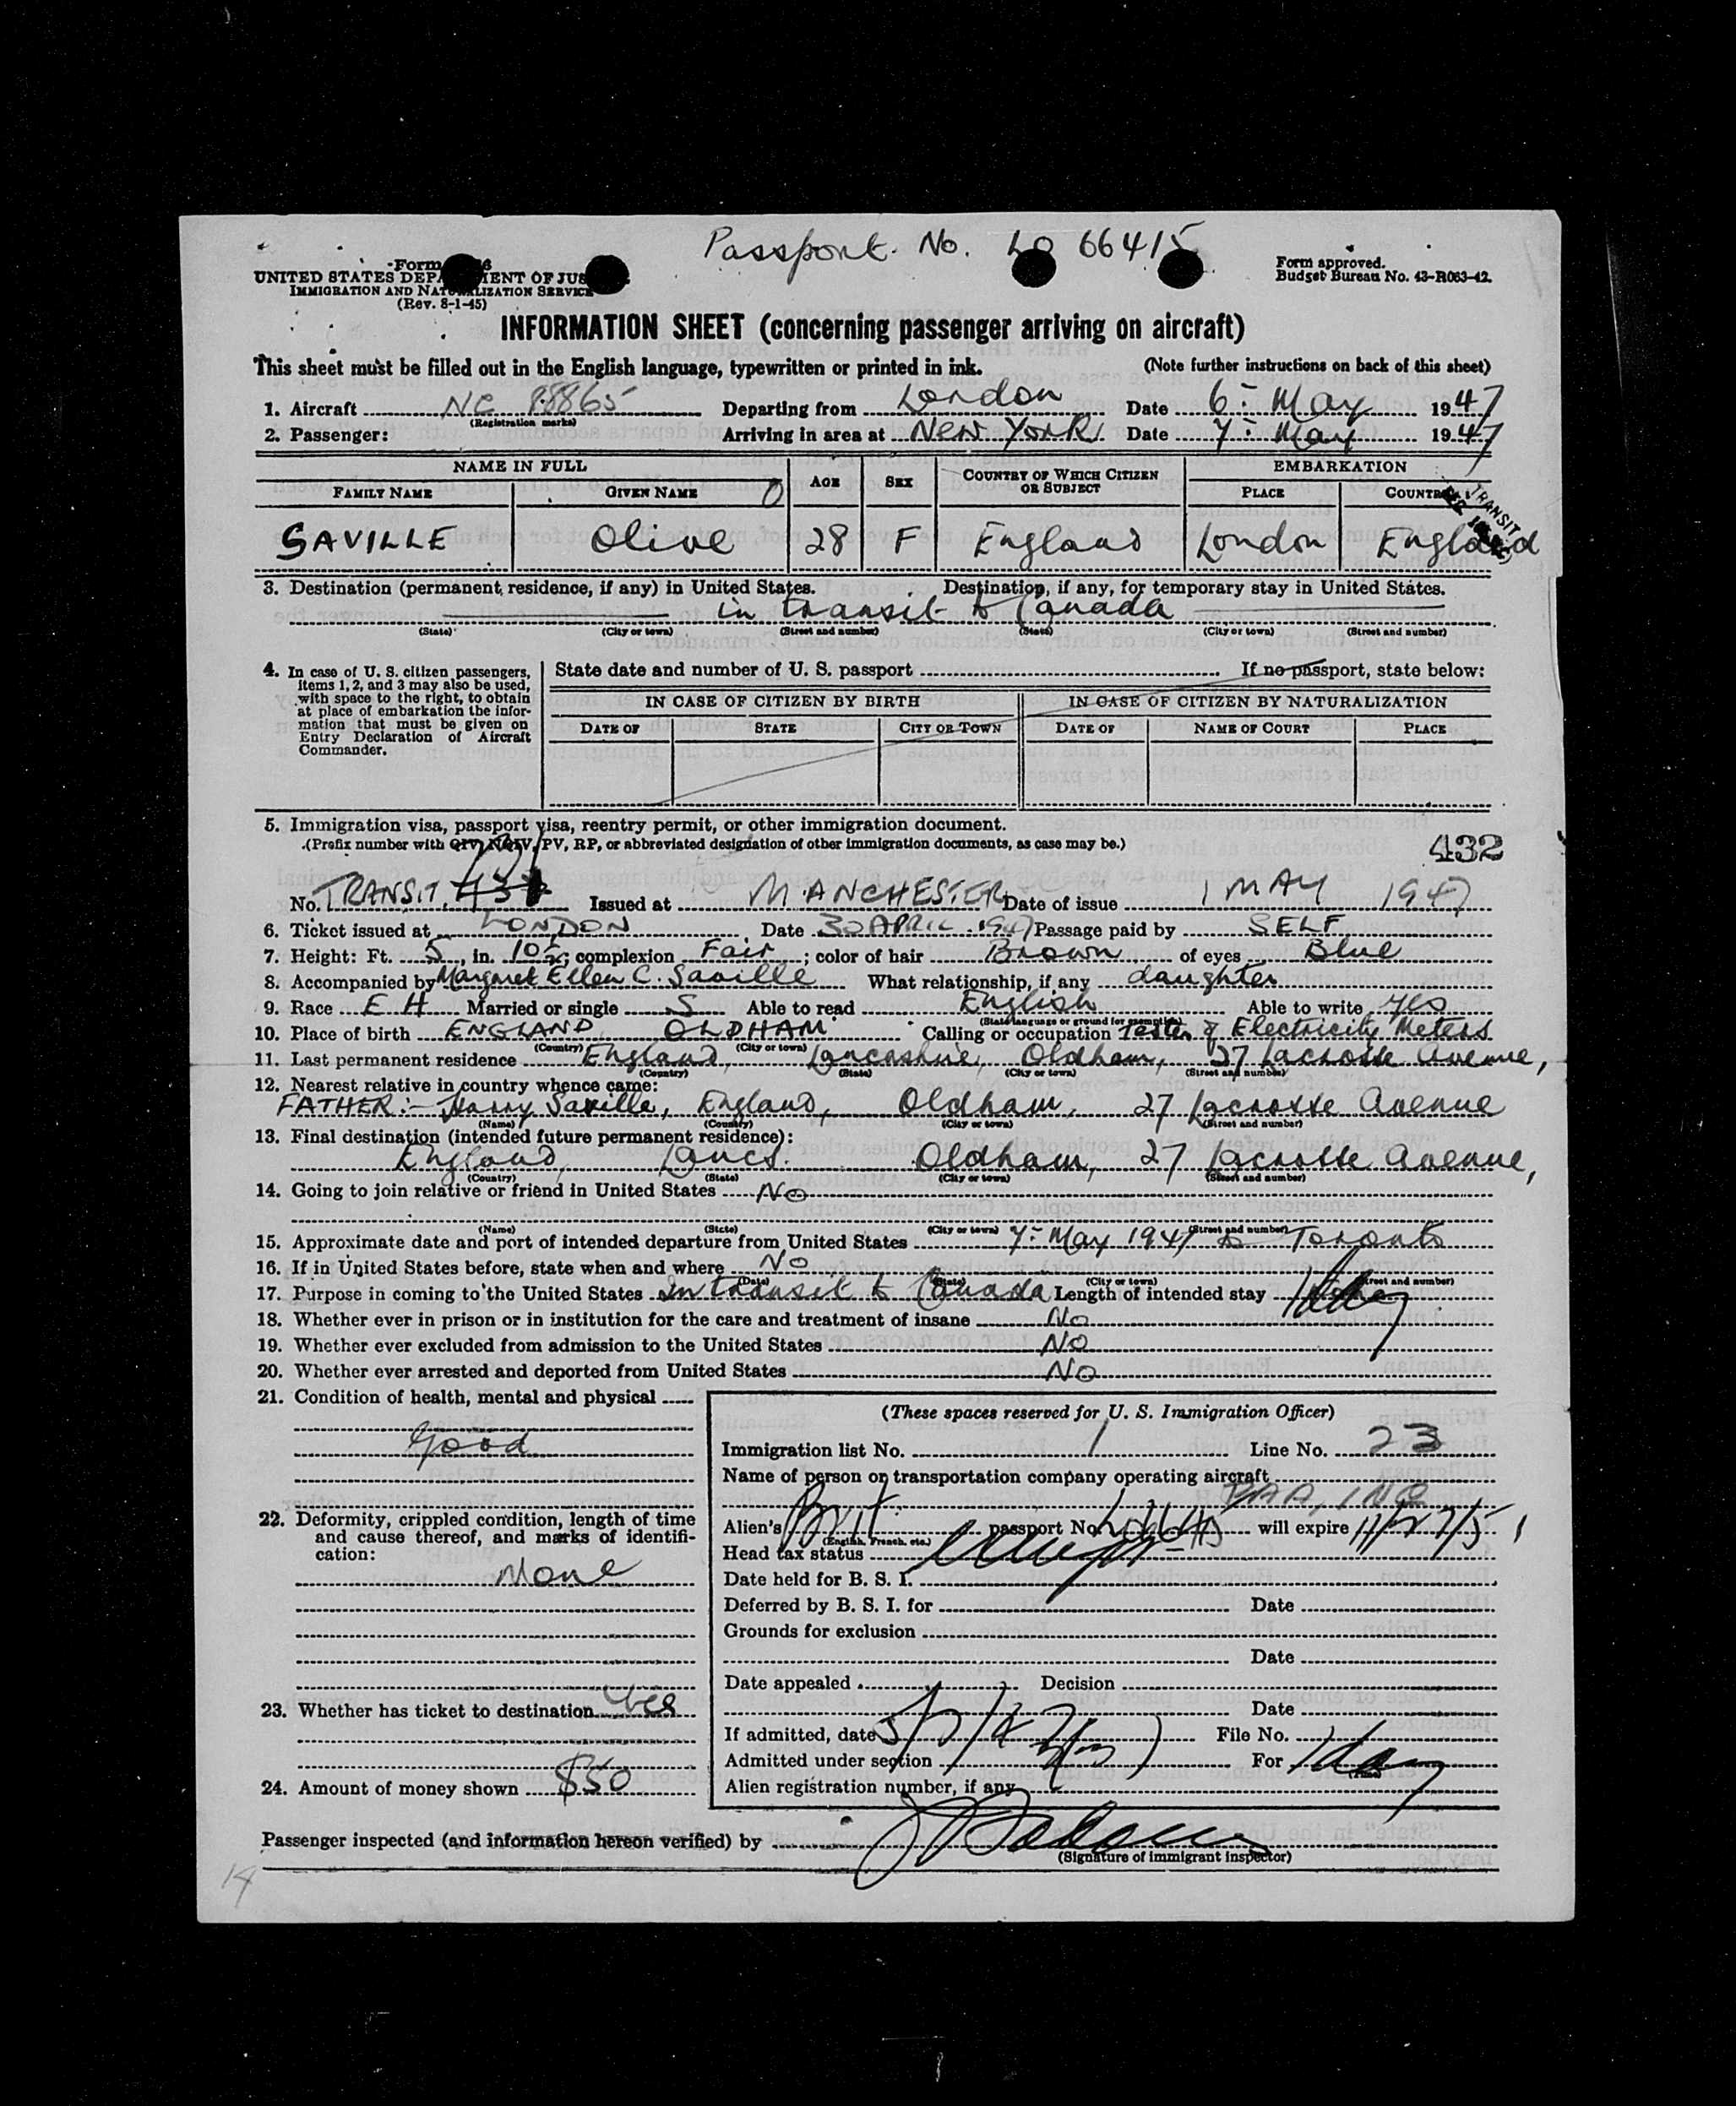 Passport No. LO 66415
Form
UNITED STATES DEPARTMENT OF JUS
IMMIGRATION AND NATURALIZATION SERVICE
(Rev. 8-1-45)
Form approved.
Budget Bureau No. 43-R063-42.
INFORMATION SHEET (concerning passenger arriving on aircraft)
This sheet must be filled out in the English language, typewritten or printed in ink. (Note further instructions on back of this sheet)
1. Aircraft NC 88865 Departing from London Date 6: May 1947
(Registration marks)
2. Passenger: Arriving in area at New York Date 7: May 1947
NAME IN FULL AGE SEX COUNTRY OF WHICH CITIZEN OR SUBJECT EMBARKATION
FAMILY NAME GIVEN NAME O PLACE COUNTRY
TRANSIT
SAVILLE Olive 28 F England London England
3. Destination (permanent residence, if any) in United States. Destination, if any, for temporary stay in United States.
in transit to Canada
(State) (City or town) (Street and number) (State) (City or town) (Street and number)
4. In case of U. S. citizen passengers, items 1, 2, and 3 may also be used, with space to the right, to obtain at place of embarkation the information that must be given on Entry Declaration of Aircraft Commander.
State date and number of U. S. passport If no passport, state below:
IN CASE OF CITIZEN BY BIRTH IN CASE OF CITIZEN BY NATURALIZATION
DATE OF STATE CITY OR TOWN DATE OF NAME OF COURT PLACE
5. Immigration visa, passport visa, reentry permit, or other immigration document.
(Prefix number with QIV, NQIV, PV, RP, or abbreviated designation of other immigration documents, as case may be.) 432
No. TRANSIT Issued at MANCHESTER Date of issue 1 MAY 1947
6. Ticket issued at LONDON Date 30 APRIL 1947 Passage paid by SELF
7. Height: Ft. 5, in. 10½; complexion Fair; color of hair Brown of eyes Blue
8. Accompanied by Margaret Ellen C. Saville What relationship, if any daughter
9. Race E H Married or single S Able to read English Able to write yes
(State language or ground for exemption)
10. Place of birth ENGLAND OLDHAM Calling or occupation Tester of Electricity Meters
(Country) (City or town)
11. Last permanent residence England, Lancashire, Oldham, 27 Lacrosse Avenue,
(Country) (State) (City or town) (Street and number)
12. Nearest relative in country whence came:
FATHER:- Harry Saville, England, Oldham, 27 Lacrosse Avenue
(Name) (Country) (City or town) (Street and number)
13. Final destination (intended future permanent residence):
England, Lancs. Oldham, 27 Lacrosse Avenue,
(Country) (State) (City or town) (Street and number)
14. Going to join relative or friend in United States No
(Name) (State) (City or town) (Street and number)
15. Approximate date and port of intended departure from United States 7: May 1947 to Toronto
16. If in United States before, state when and where No
(Date) (State) (City or town) (Street and number)
17. Purpose in coming to the United States in transit to Canada Length of intended stay 1 day
18. Whether ever in prison or in institution for the care and treatment of insane No
19. Whether ever excluded from admission to the United States NO
20. Whether ever arrested and deported from United States NO
21. Condition of health, mental and physical
Good
22. Deformity, crippled condition, length of time and cause thereof, and marks of identification:
None
23. Whether has ticket to destination Yes
24. Amount of money shown $50
(These spaces reserved for U. S. Immigration Officer)
Immigration list No. 1 Line No. 23
Name of person or transportation company operating aircraft
PAA, INC
Alien's Brit passport No. will expire
(English, French, etc.)
Head tax status
Date held for B. S. I.
Deferred by B. S. I. for Date
Grounds for exclusion
Date
Date appealed Decision
Date
If admitted, date 5/7/47 File No.
Admitted under section 3(3) For 1 day
(Time)
Alien registration number, if any
Passenger inspected (and information hereon verified) by
(Signature of immigrant inspector)
14